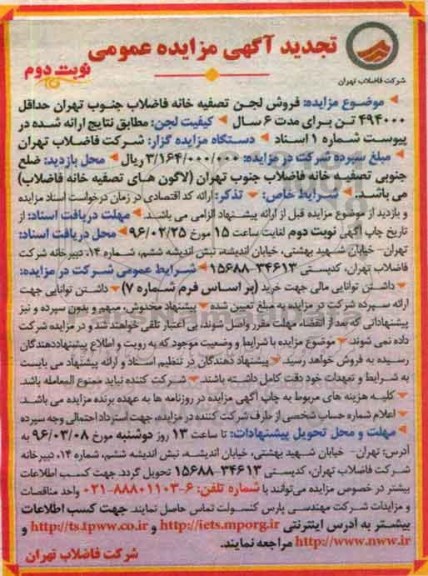 تجدید آگهی مزایده عمومی
نوبت دوم
شرکت فاضلاب تهران
موضوع مزایده: فروش لجن تصفیه خانه فاضلاب جنوب تهران حداقل
۴۹۴۰۰۰ تن برای مدت ۶ سال کیفیت لجن: مطابق نتایج ارائه شده در
پیوست شماره ۱ اسناد دستگاه مزایده گزار: شرکت فاضلاب تهران
مبلغ سپرده شرکت در مزایده: ۳/۱۶۴/۰۰۰/۰۰۰ ریال محل بازدید: ضلع
جنوبی تصفیه خانه فاضلاب جنوب تهران (لاگون های تصفیه خانه فاضلاب)
می باشد. شرایط خاص: تذکر: ارائه کد اقتصادی در زمان درخواست اسناد مزایده
و بازدید از موضوع مزایده قبل از ارائه پیشنهاد الزامی می باشد. مهلت دریافت اسناد: از
تاریخ چاپ آگهی نوبت دوم لغایت ساعت ۱۵ مورخ ۹۶/۰۲/۲۵ محل دریافت اسناد:
تهران- خیابان شهید بهشتی، خیابان اندیشه، نبش اندیشه ششم، شماره ۱۴، دبیرخانه شرکت
فاضلاب تهران، کدپستی ۳۴۶۱۳-۱۵۶۸۸ شرایط عمومی شرکت در مزایده:
داشتن توانایی مالی جهت خرید (بر اساس فرم شماره ۷) داشتن توانایی جهت
ارائه سپرده شرکت در مزایده به مبلغ تعیین شده پیشنهاد مخدوش، مبهم و بدون سپرده و نیز
پیشنهاداتی که بعد از انقضاء مهلت مقرر واصل شوند، بی اعتبار تلقی خواهند شد و در مزایده شرکت
داده نمی شوند. موضوع مزایده با شرایط و وضعیت موجود که به رویت و اطلاع پیشنهاددهندگان
رسیده به فروش خواهد رسید. پیشنهاد دهندگان در تنظیم اسناد و ارائه پیشنهاد می بایست
به شرایط و تعهدات خود دقت کامل داشته باشند. شرکت کننده نباید ممنوع المعامله باشد.
کلیه هزینه های مربوط به چاپ آگهی مزایده در روزنامه ها به عهده برنده مزایده می باشد.
اعلام شماره حساب شخصی از طرف شرکت کننده در مزایده، جهت استرداد احتمالی وجه سپرده
مهلت و محل تحویل پیشنهادات: تا ساعت ۱۳ روز دوشنبه مورخ ۹۶/۰۳/۰۸ به
آدرس: تهران- خیابان شهید بهشتی، خیابان اندیشه، نبش اندیشه ششم، شماره ۱۴، دبیرخانه
شرکت فاضلاب تهران، کدپستی ۳۴۶۱۳-۱۵۶۸۸ تحویل گردد. جهت کسب اطلاعات
بیشتر در خصوص مزایده می‌توانند با شماره تلفن: ۶-۸۸۸۰۱۱۰۳-۰۲۱ واحد مناقصات
و مزایدات شرکت مهندسی پارس کنسولت تماس حاصل نمایند. جهت کسب اطلاعات
بیشتر به آدرس اینترنتی http://iets.mporg.ir و http://ts.tpww.co.ir و
http://www.nww.ir مراجعه نمایند.
شرکت فاضلاب تهران